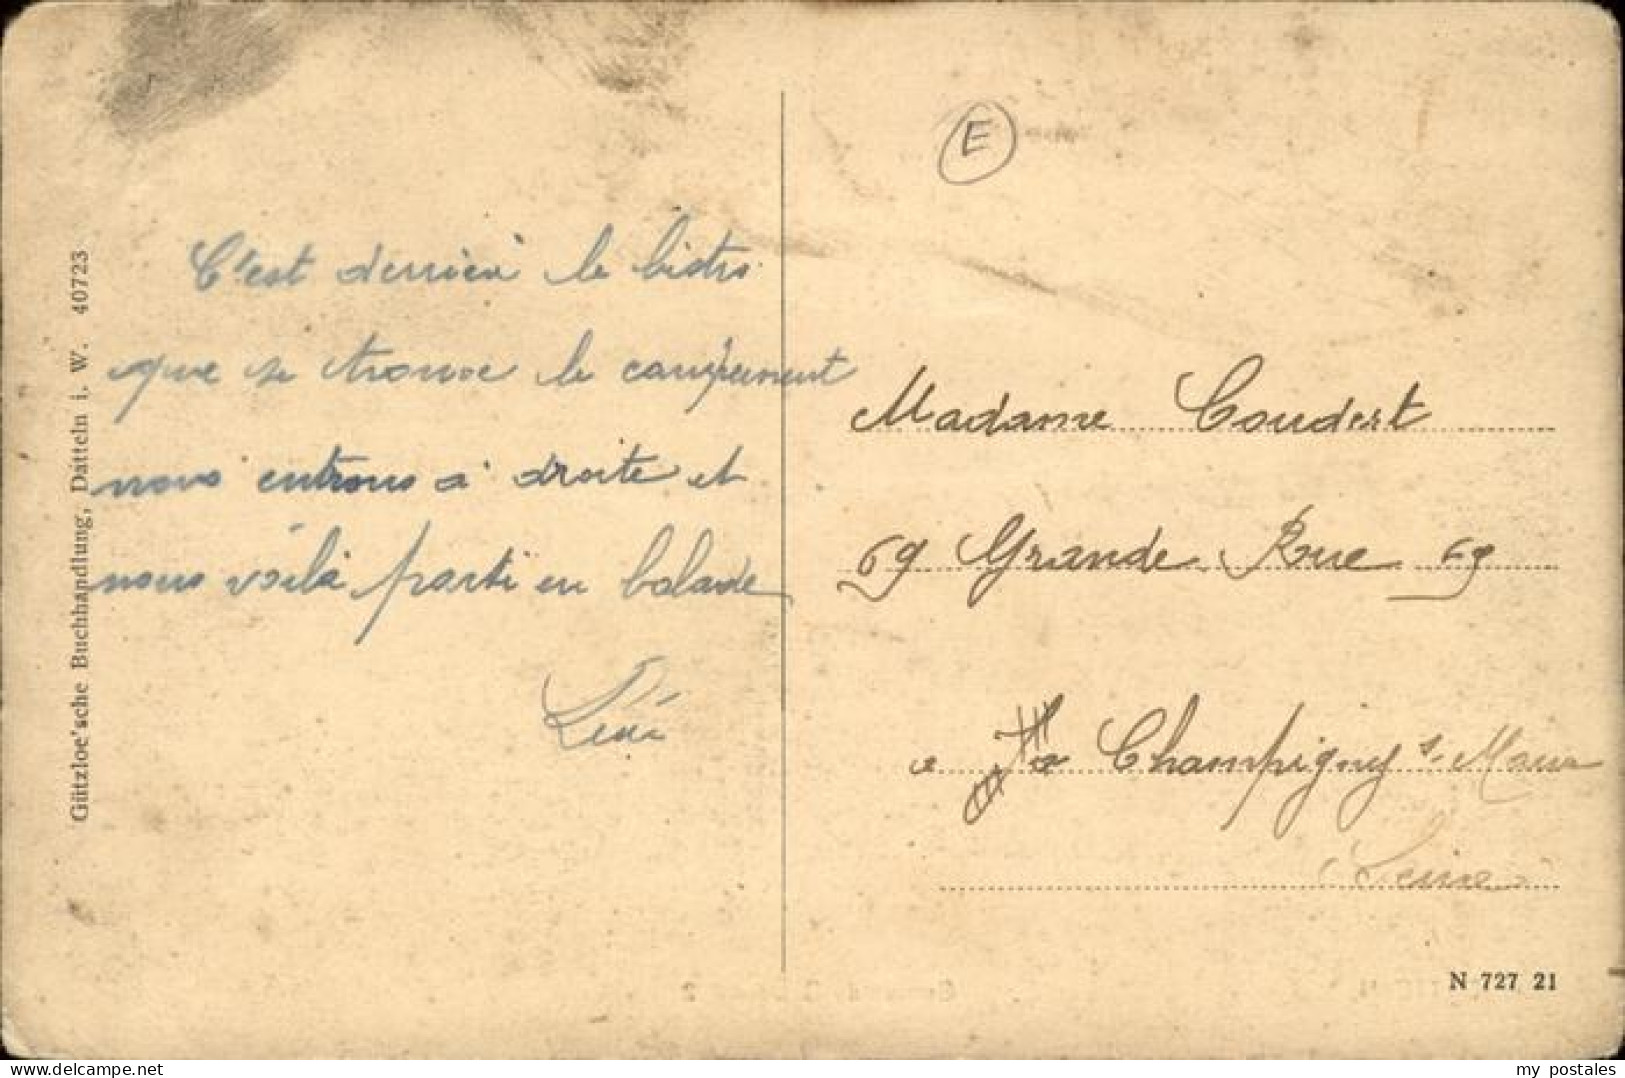 Gützloe'sche Buchhandlung, Datteln i. W. 40723
C'est derrière le bistro
que se trouve le campement
nous entrons à droite et
nous voilà parti en balade
E
Madame Coudert
69 Grande Rue 69
a Champigny s. Marne
(Seine)
N 727 21
my_postales